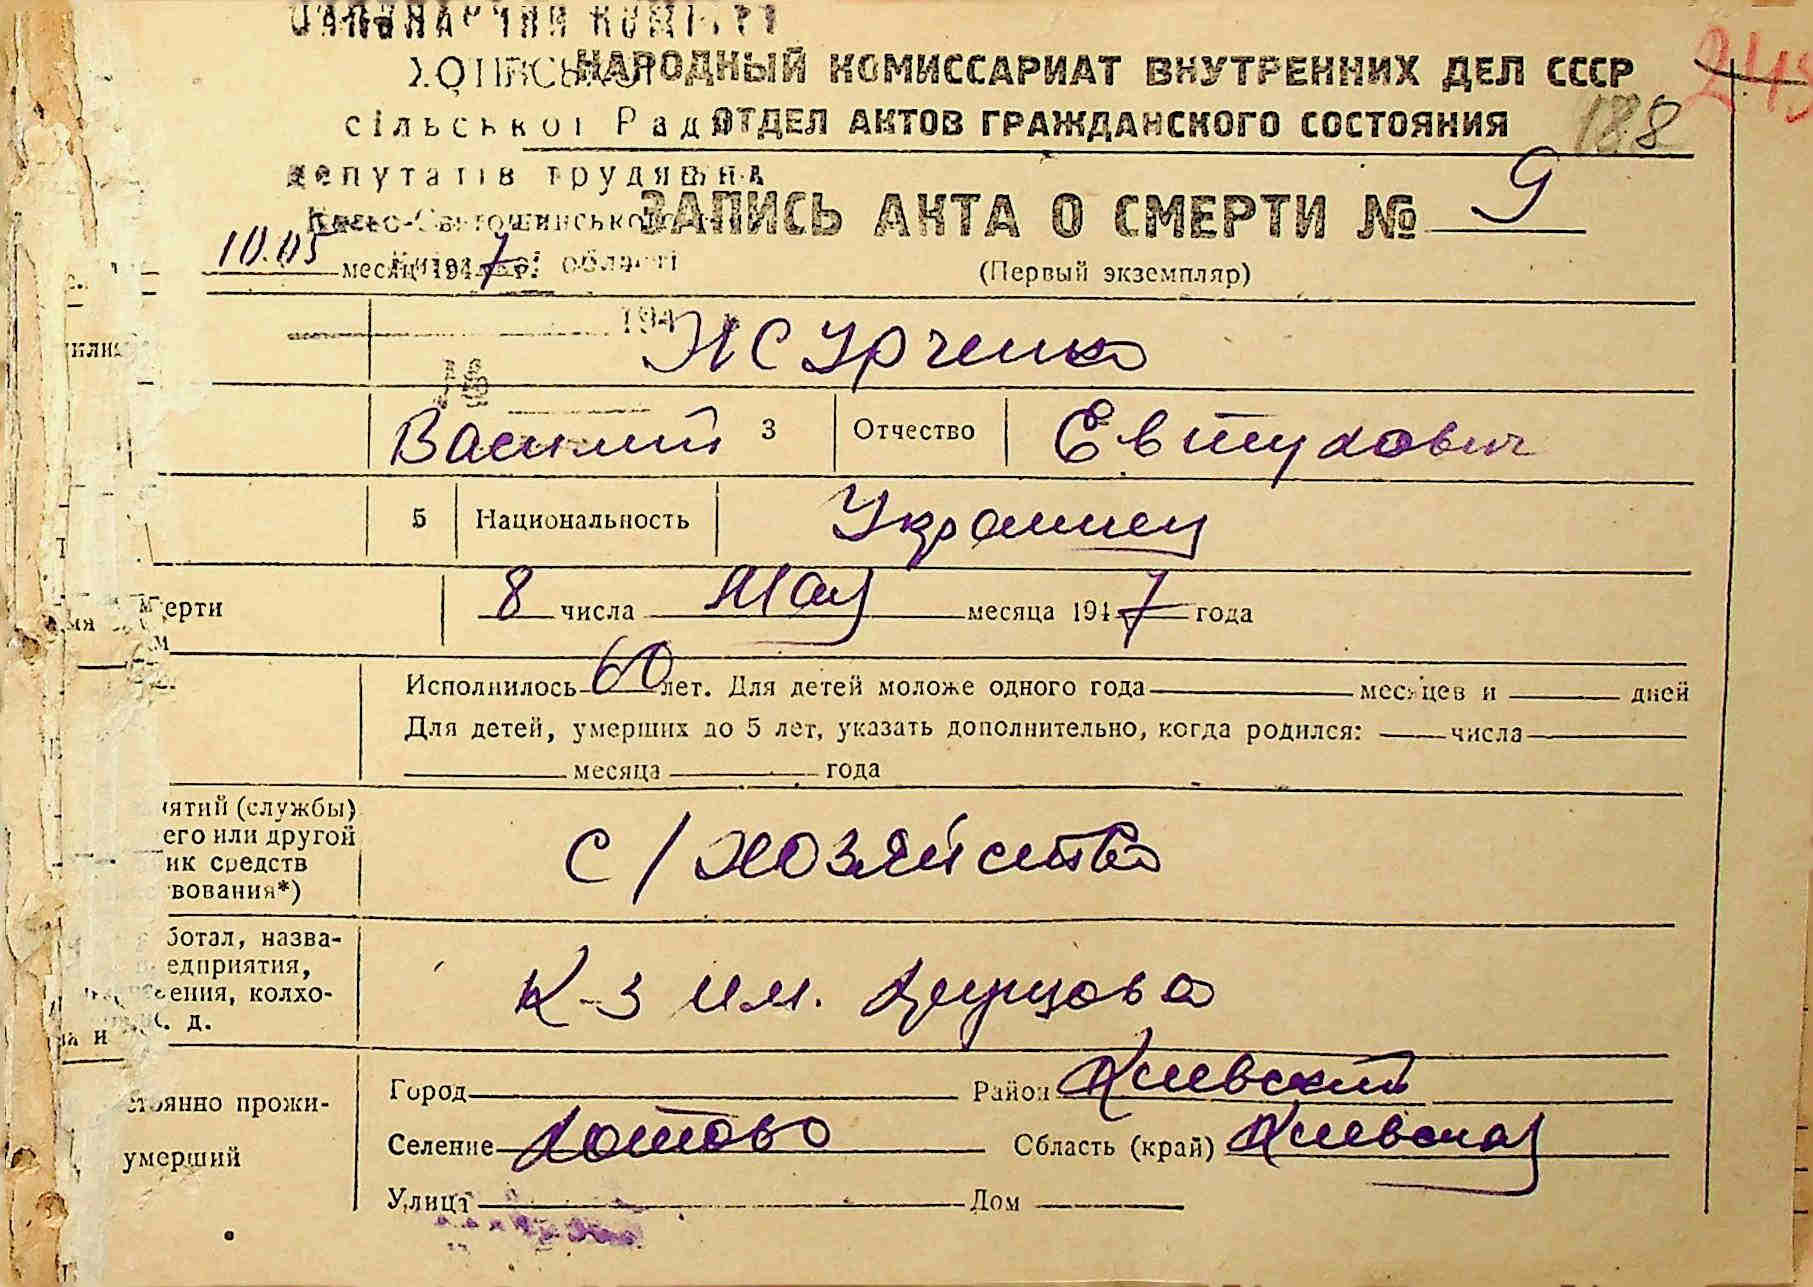 НАРОДНЫЙ КОМИССАРИАТ ВНУТРЕННИХ ДЕЛ СССР
сільської Ради ОТДЕЛ АКТОВ ГРАЖДАНСКОГО СОСТОЯНИЯ 188
депутатів трудящих
ЗАПИСЬ АКТА О СМЕРТИ № 9
10.05 месяц 1947 г. області (Первый экземпляр)
194
№
Василий 3 Отчество Евтухович
5 Национальность Украинец
мерти 8 числа Мая месяца 1947 года
Исполнилось 60 лет. Для детей моложе одного года месяцев и дней
Для детей, умерших до 5 лет, указать дополнительно, когда родился: числа
месяца года
ятий (службы)
его или другой
ик средств
вования*)
С/хозяйство
ботал, назва-
едприятия,
ения, колхо-
. д.
К-з им.
Город Район Киевский
тоянно прожи-
Селение Хотово Область (край) Киевская
умерший
Улица Дом